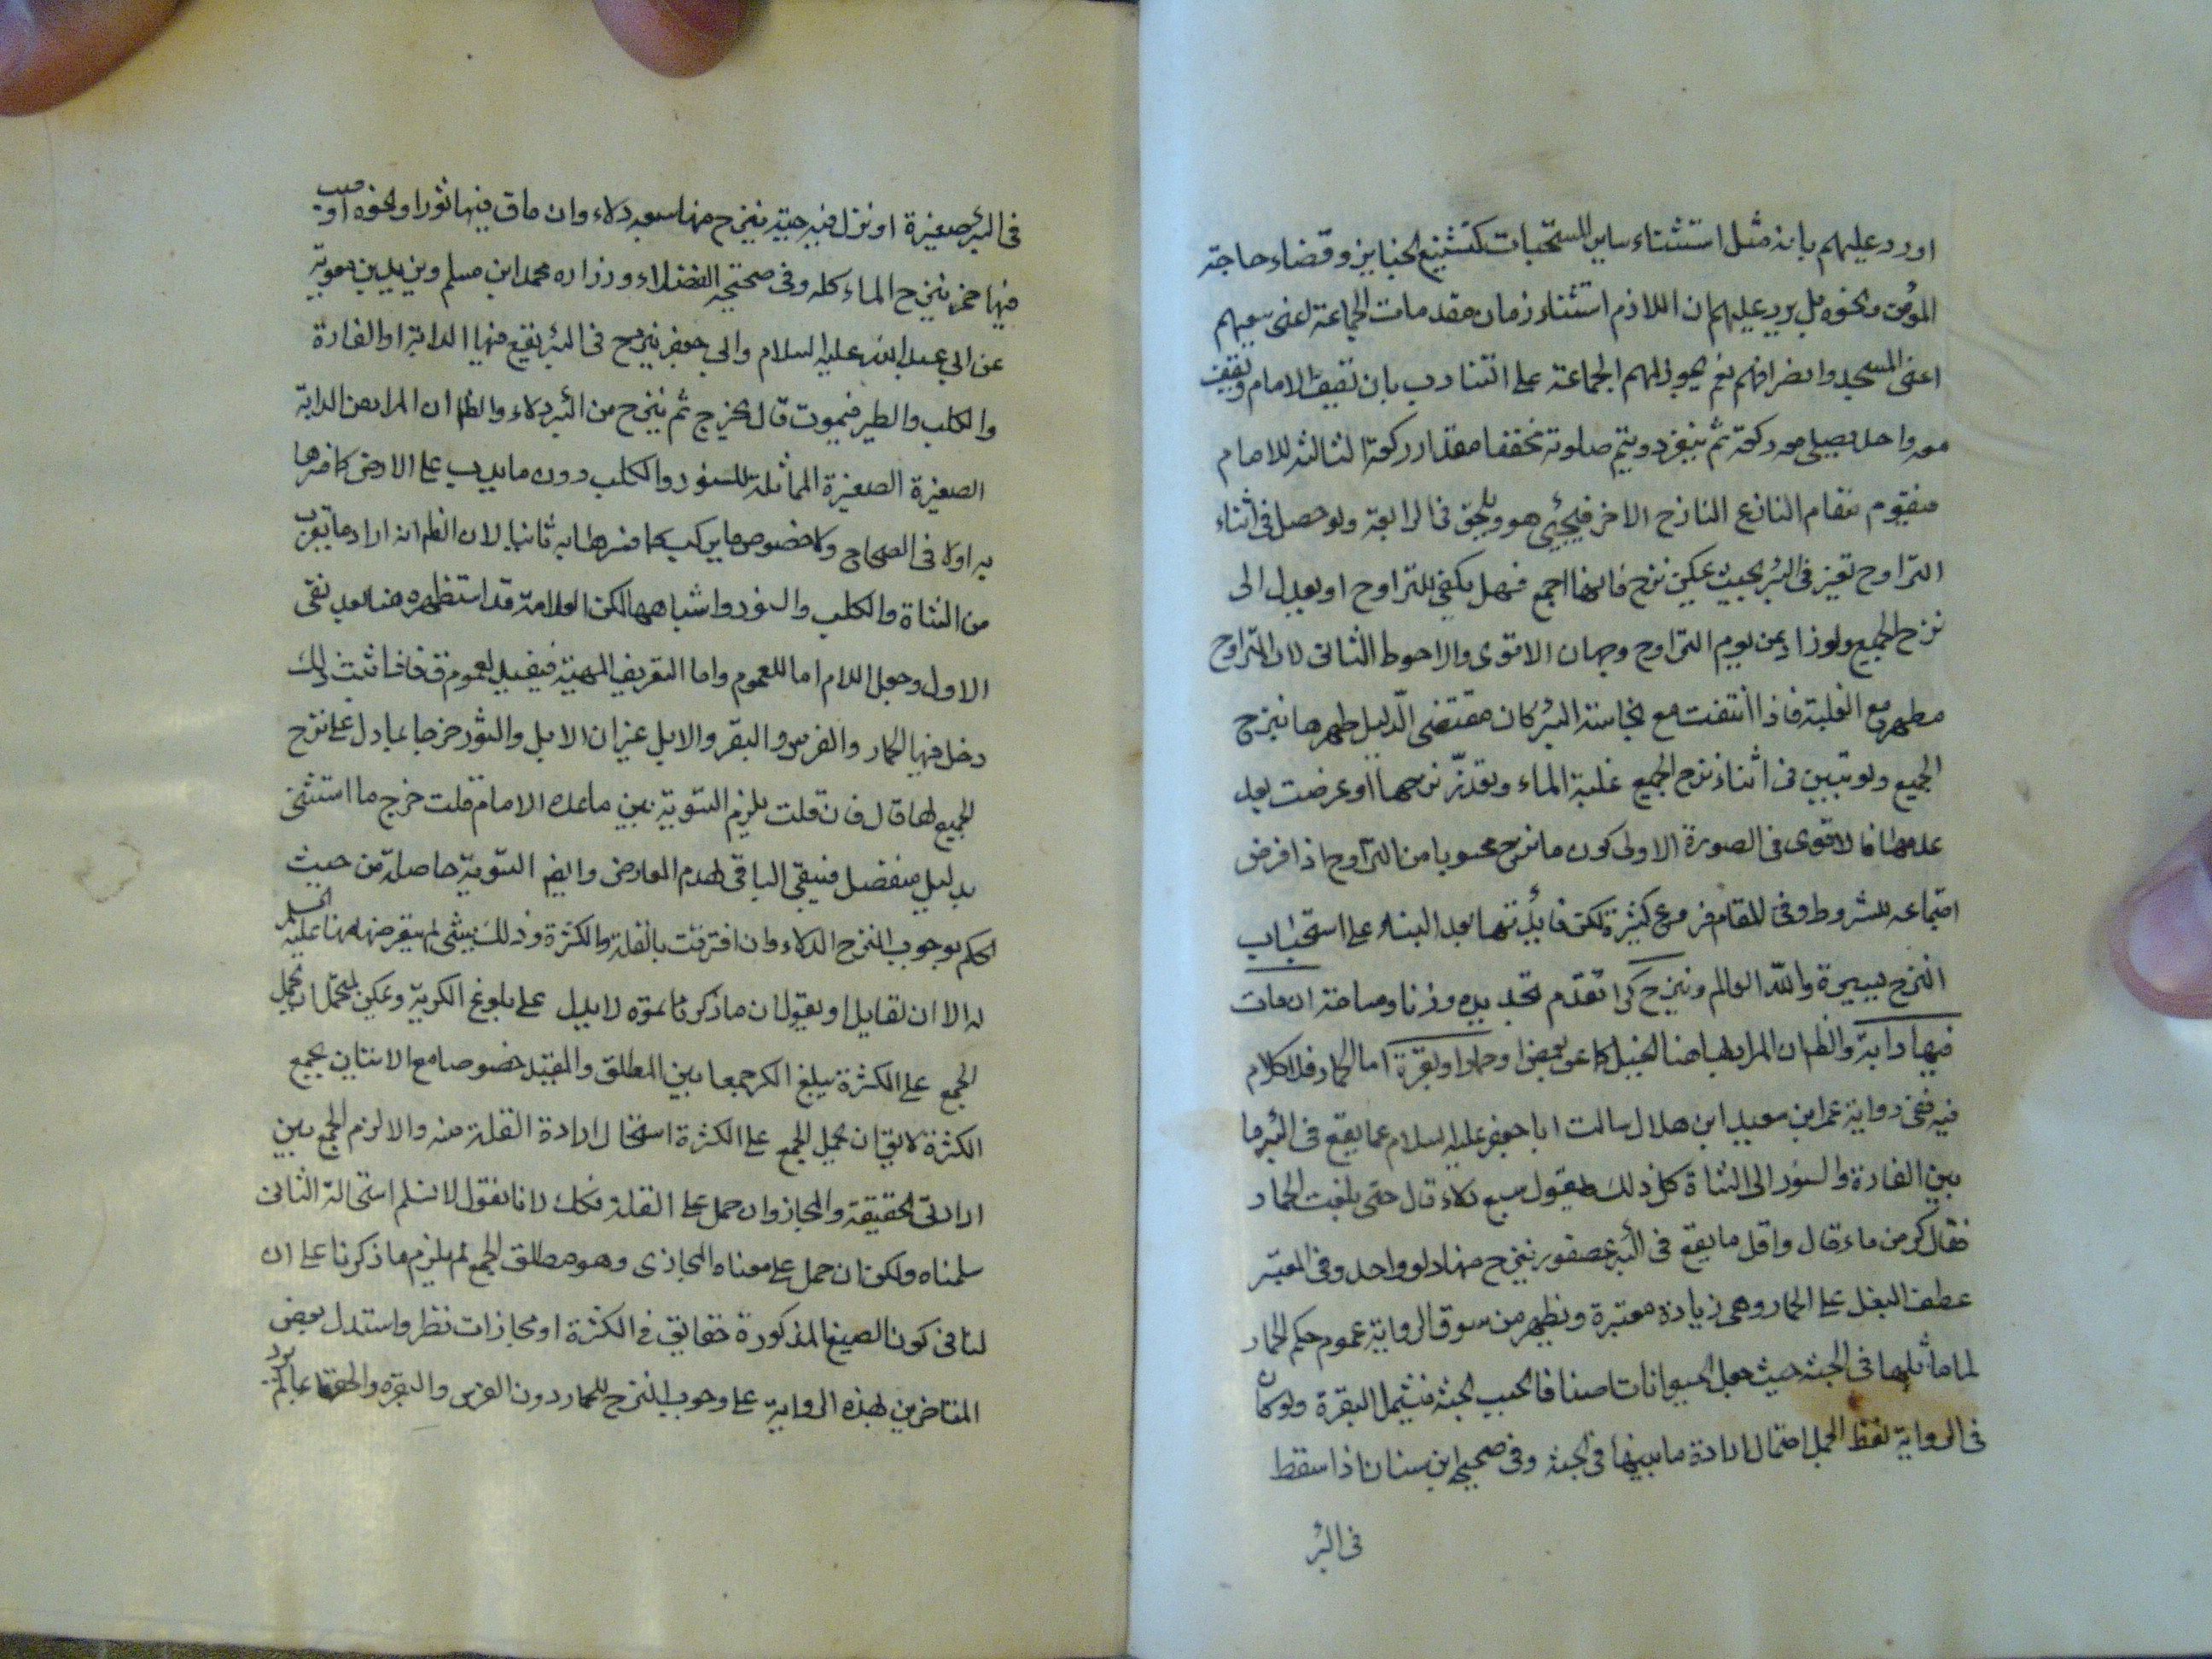 اورد عليهم بانه مثل استثناء ساير المستحبات كتشييع الجنايز وقضاء حاجة
المؤمن ونحوه بل يرد عليهم ان اللازم استثناء زمان مقدمات الجماعة اعنى سعيهم
اعنى المسجد وانصرافهم نعم يجوز لهم الجماعة على التناوب بان تقيف الامام ويقف
معه واحد يصلى معه ركعة ثم ينفرد ويتم صلوته مخففا مقدار ركعة الثالثة للامام
فيقوم مقام النازح النازح الاخر فيجيئ هو ويلحق فى الرابعة ولو حصل فى اثناء
التراوح تغير فى البئر بحيث يمكن نزح فائها اجمع فهل يكفى التراوح او يعدل الى
نزح الجميع ولو زاد عن يوم التراوح وجهان الاقوى والاحوط الثانى لان التراوح
مطهر مع الغلبة فاذا انتفت مع نجاسة البئر كان مقتضى الدليل طهرها بنزح
الجميع ولو تبين فى اثناء نزح الجميع غلبة الماء وتعذر نزحها او عرضت بعد
عدمها فالاقوى فى الصورة الاولى كون ما نزح محسوبا من التراوح اذا فرض
اجتماعه للشروط وفى المقام فروع كثيرة لكن فايدتها بعد البناء على استحباب
النزح يسيرة والله العالم وينزح كر تقدم تحديده وزنا ومساحة ان مات
فيها دابة والظ ان المراد بها هنا الخيل كما عن بعض او حمار او بقرة اما الحمار فلا كلام
فيه ففى رواية عمر ابن سعيد ابن هلال سالت ابا جعفر عليه السلام عما يقع فى البئر ما
بين الفارة والسنور الى الشاة كل ذلك يقول سبع دلاء قال حتى بلغت الحمار
فقال كر من ماء قال واقل ما يقع فى البئر عصفور ينزح منها دلو واحد وفى المعتبر
عطف البغل على الحمار وهى زيادة معتبرة ويظهر من سوق الرواية عموم حكم الحمار
لما ماثلها فى الجثة حيث جعل الحيوانات اصنافا بحسب الجثة فيشمل البقرة ولو كان
فى الرواية لفظ الجمل احتمال ارادة ما بينها فى الجثة وفى صحيح ابن سنان اذا سقط
فى البئر
فى البئر صغيرة او نزل فيه جنب ينزح منها سبعة دلاء وان مات فيها ثور او نحوه او صب
فيها خمر ينزح الماء كله وفى صحيحة الفضلاء وزراره محمد ابن مسلم وبريد بن معوية
عن ابى عبد الله عليه السلام وابى جعفر ع فى البئر يقع فيها الدابة او الفارة
والكلب والطير فيموت قال يخرج ثم ينزح من البئر دلاء والظ ان المراد من الدابة
الصغيرة الصغيرة المماثلة للسنور والكلب دون ما يدب على الارض كما فسرها
به اولا فى الصحاح ولا خصوص ما يركب كما فسرها به ثانيا لان الظ انه اراد ما يقرب
من الشاة والكلب والسنور واشباهها لكن العلامة قد استظهره هنا بعد نفى
الاول وجعل اللام اما للعموم واما التعريف المهية فيفيد العموم ق فاذا ثبت ذلك
دخل فيها الحمار والفرس والبقر والابل غير ان الابل والثور خرجا بما دل على نزح
الجميع لها قال فان قلت يلزم التسوية بين ما عده الامام قلت خرج ما استثنى
بدليل منفصل فيبقى الباقى لعدم المعارض وايضا التسوية حاصلة من حيث
الحكم بوجوب النزح الدلاء وان افترقت بالقلة والكثرة وذلك شئ لم يتعرض له هنا عليه السلم
له الا ان لقايل ان يقول ان ما ذكرتموه لا يدل على بلوغ الكرية ويمكن التمحل بحمل
الجمع على الكثرة فيبلغ الكر جمعا بين المطلق والمقيد خصوصا مع الاتيان بجمع
الكثرة لا يق ان حمل الجمع على الكثرة استحال ارادة القلة منه والا لزم الجمع بين
ارادتى الحقيقة والمجاز وان حمل على القلة فكك لانا نقول لا نسلم استحالة الثانى
سلمناه ولكن ان حمل على معناه المجازى وهو مطلق الجمع لم يلزم ما ذكرنا على ان
لنا فى كون الصيغ المذكورة حقايق فى الكثرة او مجازات نظر واستدل بعض
المتاخرين لهذه الرواية على وجوب النزح للحمار دون الفرس والبقرة والحقها بما لم يرد